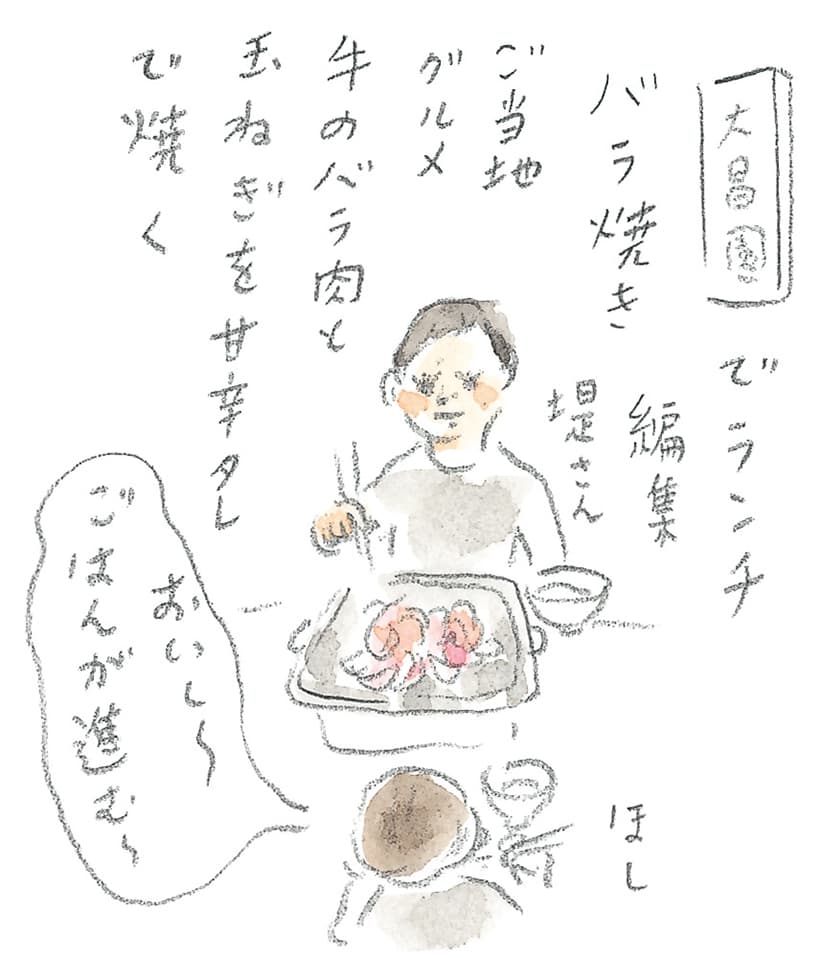 大昌園でランチ
バラ焼き
ご当地
グルメ
牛のバラ肉と
玉ねぎを甘辛タレ
で焼く
編集
堤さん
おいし〜
ごはんが進む〜
ほし